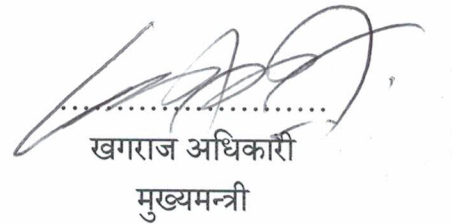 खगराज अधिकारी
मुख्यमन्त्री